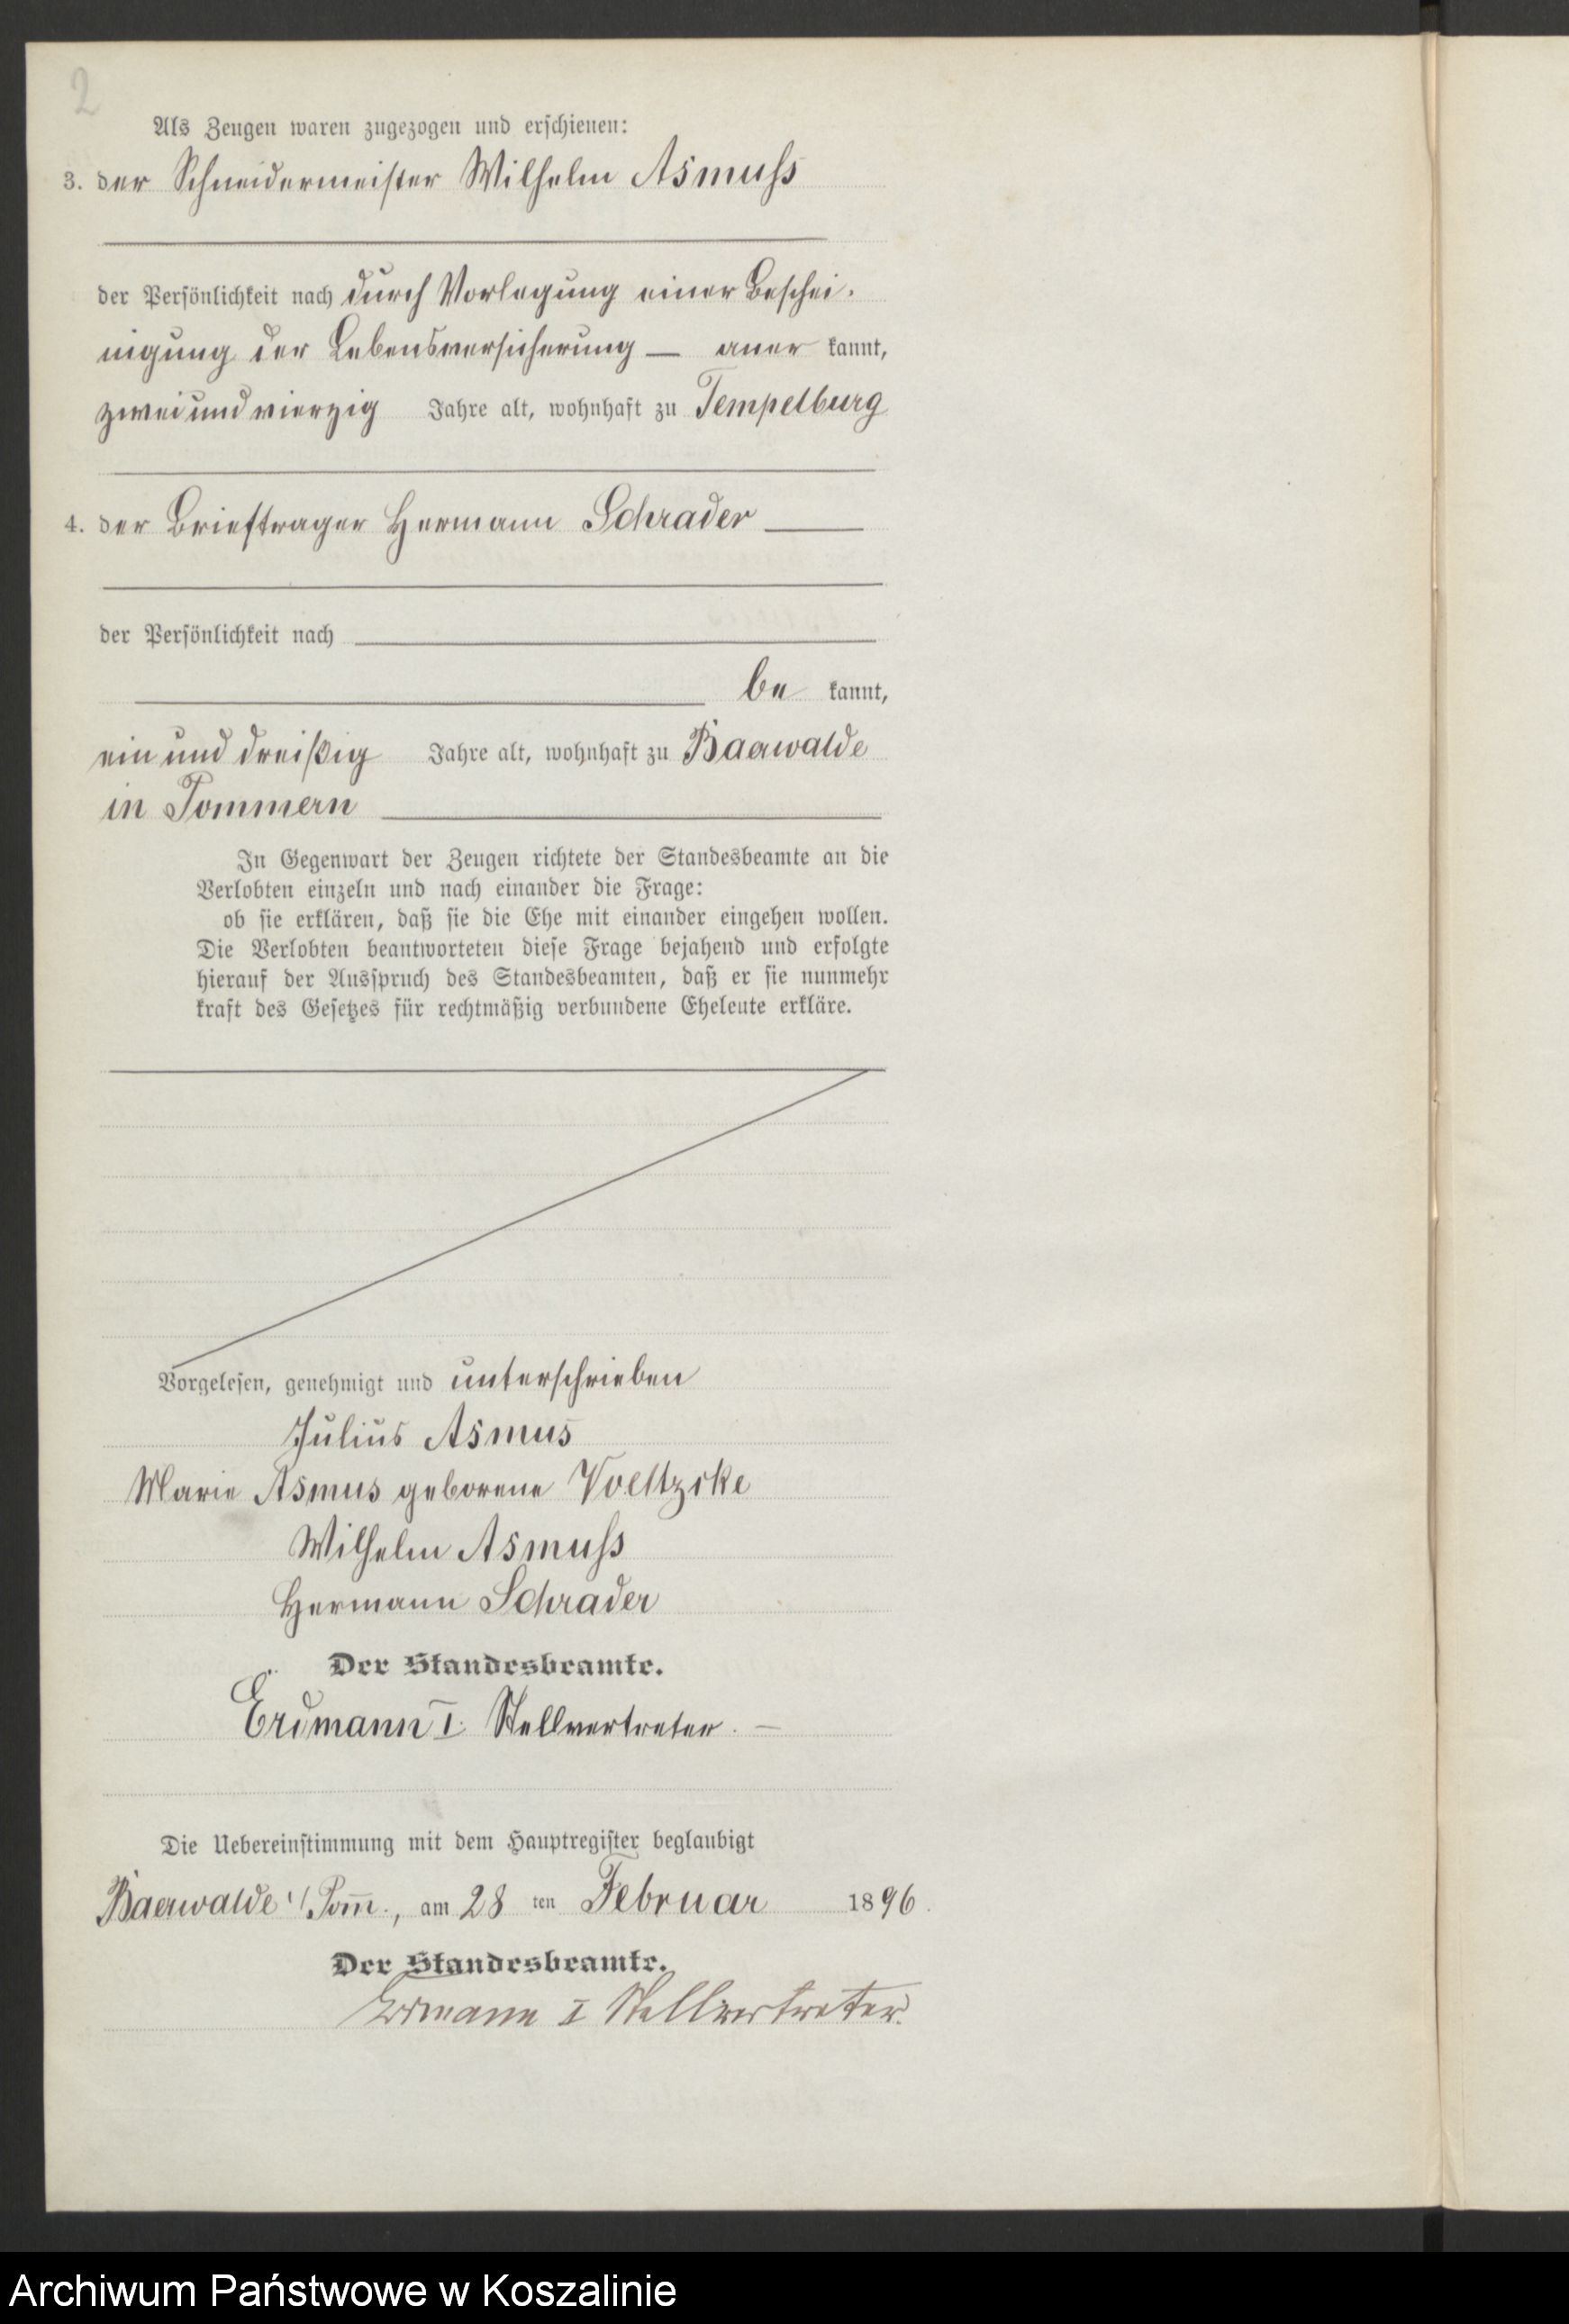 2
Als Zeugen waren zugezogen und erschienen:
3. der Schneidermeister Wilhelm Asmuss
der Persönlichkeit nach durch Vorlegung einer Beschei-
nigung der Lebensversicherung — aner kannt,
zwei und vierzig Jahre alt, wohnhaft zu Tempelburg
4. der Briefträger Hermann Schrader
der Persönlichkeit nach
be kannt,
ein und dreißig Jahre alt, wohnhaft zu Baerwalde
in Pommern
In Gegenwart der Zeugen richtete der Standesbeamte an die
Verlobten einzeln und nach einander die Frage:
ob sie erklären, daß sie die Ehe mit einander eingehen wollen.
Die Verlobten beantworteten diese Frage bejahend und erfolgte
hierauf der Ausspruch des Standesbeamten, daß er sie nunmehr
kraft des Gesetzes für rechtmäßig verbundene Eheleute erkläre.
Vorgelesen, genehmigt und unterschrieben
Julius Asmus
Marie Asmus geborene Voeltzke
Wilhelm Asmuss
Hermann Schrader
Der Standesbeamte.
Erdmann I. Stellvertreter. —
Die Uebereinstimmung mit dem Hauptregister beglaubigt
Baerwalde i/Pomm., am 28 ten Februar 1896.
Der Standesbeamte.
Erdmann I Stellvertreter.
Archiwum Państwowe w Koszalinie